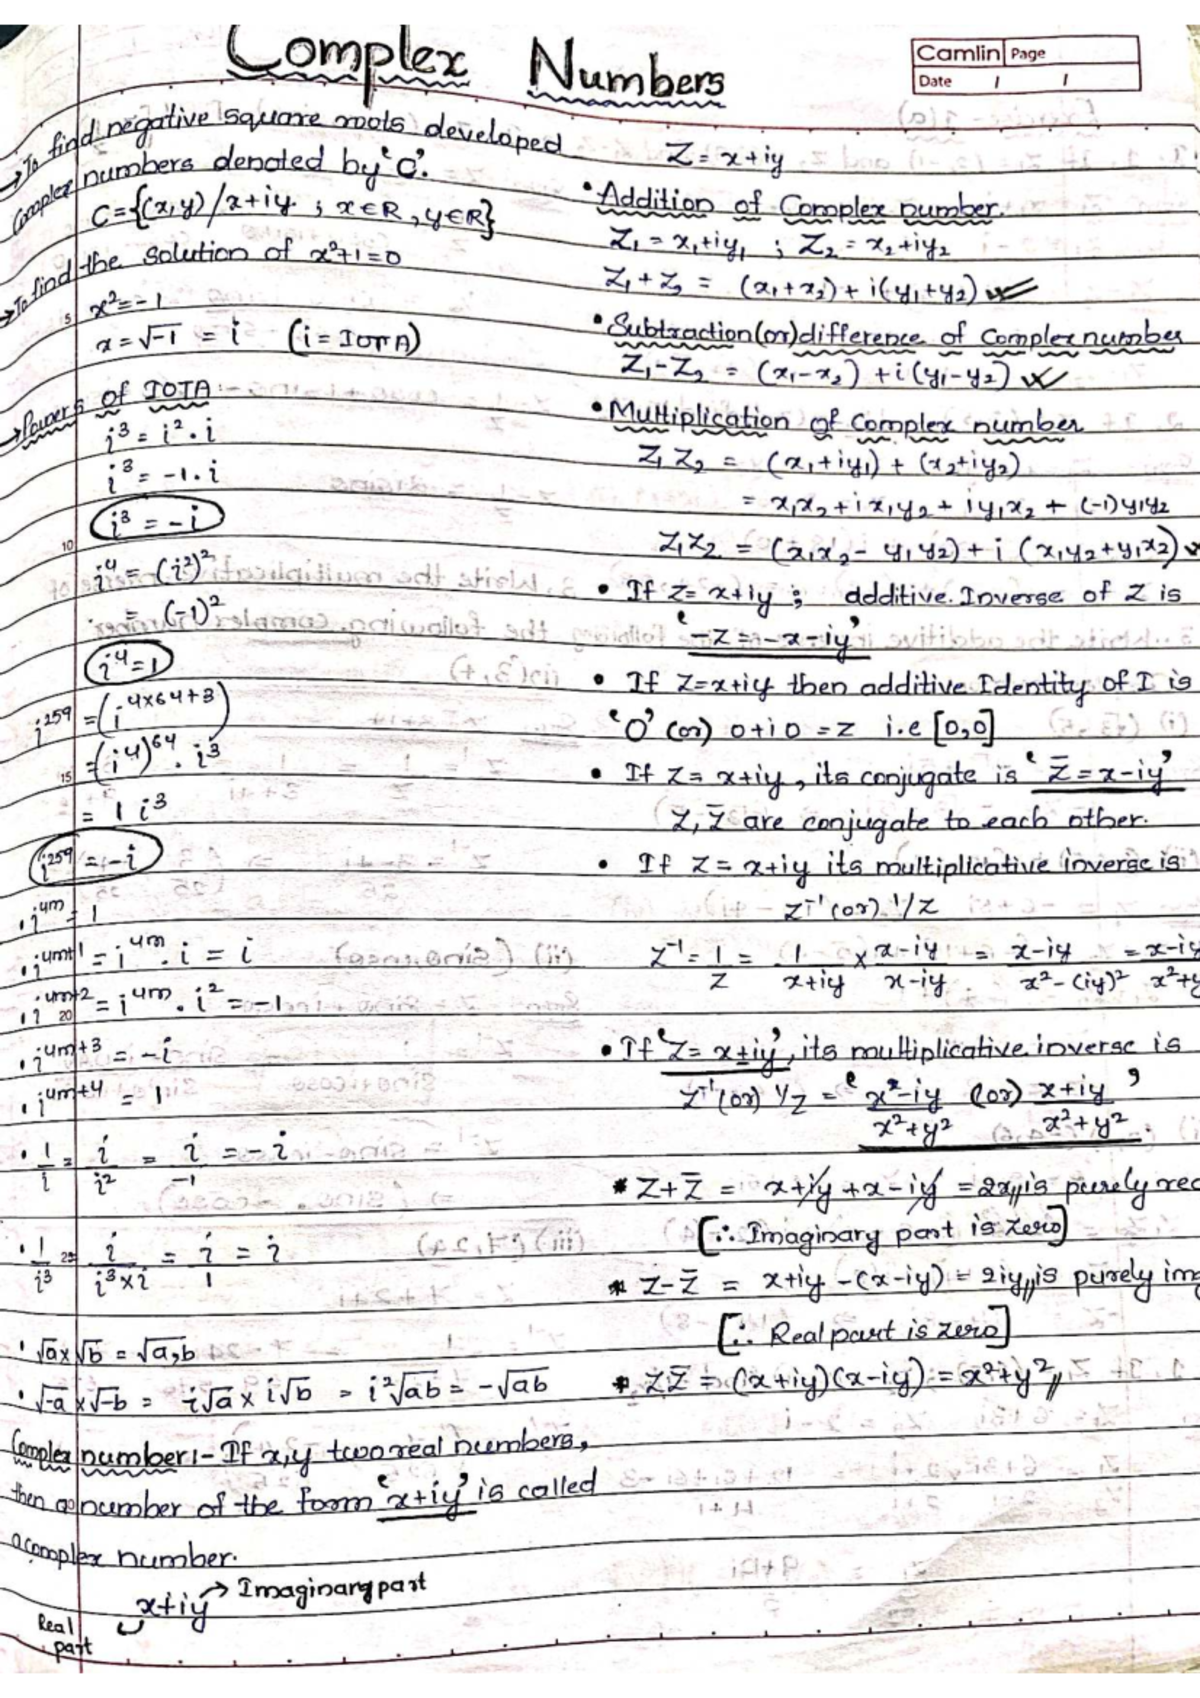 Complex Numbers
Camlin Page
Date / /
→ To find negative square roots developed
Complex numbers denoted by 'C'.
C={(x,y)/x+iy ; x∈R, y∈R}
→ To find the solution of x²+1=0
5
x²=-1
x=√-1 = i (i=IOTA)
→ Powers of IOTA
i³ = i².i
i³ = -1.i
i³ = -i
10
i⁴ = (i²)²
= (-1)²
i⁴=1
i²⁵⁹ = (i⁴ˣ⁶⁴⁺³)
= (i⁴)⁶⁴ . i³
15
= 1 i³
i²⁵⁹ = -i
. i⁴ᵐ = 1
. i⁴ᵐ⁺¹ = i⁴ᵐ . i = i
. i⁴ᵐ⁺² = i⁴ᵐ . i² = -1
20
. i⁴ᵐ⁺³ = -i
. i⁴ᵐ⁺⁴ = 1
. 1/i = i/i² = i/-1 = -i
. 1/i³ = i/i³×i = i/1 = i
25
. √a×√b = √a,b
. √-a × √-b = i√a × i√b = i²√ab = -√ab
Complex number:- If x,y two real numbers,
then a number of the form 'x+iy' is called
a complex number.
x+iy → Imaginary part
Real
part
Z = x+iy
• Addition of Complex number.
Z₁ = x₁+iy₁ ; Z₂ = x₂+iy₂
Z₁+Z₂ = (x₁+x₂)+i(y₁+y₂)
• Subtraction(or)difference of Complex number
Z₁-Z₂ = (x₁-x₂)+i(y₁-y₂)
• Multiplication of Complex number
Z₁Z₂ = (x₁+iy₁)+(x₂+iy₂)
= x₁x₂+ix₁y₂+iy₁x₂+(-1)y₁y₂
Z₁Z₂ = (x₁x₂-y₁y₂)+i(x₁y₂+y₁x₂)
• If Z=x+iy ; additive Inverse of Z is
'-Z=-x-iy'
• If Z=x+iy then additive Identity of I is
'0' (or) 0+i0 = z i.e [0,0]
• If Z=x+iy, its conjugate is 'Z̄=x-iy'
Z, Z̄ are conjugate to each other.
• If Z=x+iy its multiplicative inverse is
Z⁻¹ (or) 1/Z
Z⁻¹ = 1/Z = 1/x+iy × x-iy/x-iy = x-iy/x²-(iy)² = x-iy/x²+y
• If 'Z=x±iy', its multiplicative inverse is
Z⁻¹ (or) 1/Z = 'x-iy/x²+y² (or) x+iy/x²+y²'
* Z+Z̄ = x+iy+x-iy = 2x,, is purely rea
[∵ Imaginary part is zero]
* Z-Z̄ = x+iy-(x-iy) = 2iy,, is purely im
[∵ Real part is zero]
* ZZ̄ = (x+iy)(x-iy) = x²+y²,,